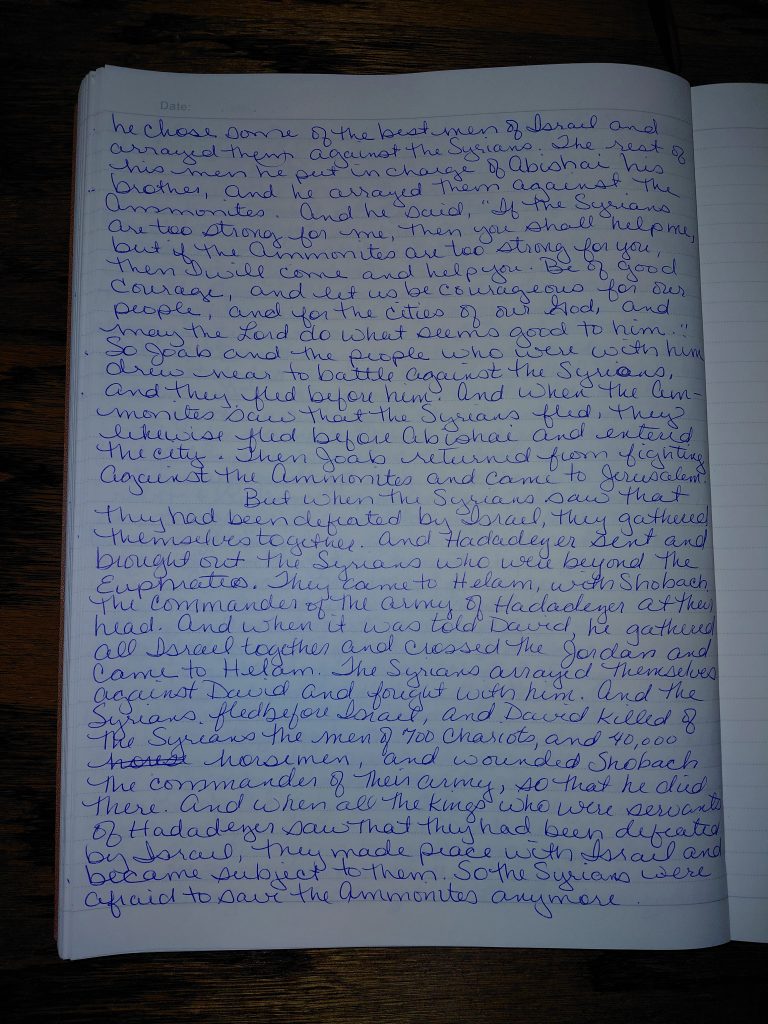 Date:
he chose some of the best men of Israel and
arrayed them against the Syrians. The rest of
his men he put in charge of Abishai his
brother, and he arrayed them against the
Ammonites. And he said, "If the Syrians
are too strong for me, then you shall help me,
but if the Ammonites are too strong for you,
then I will come and help you. Be of good
courage, and let us be courageous for our
people, and for the cities of our God, and
may the Lord do what seems good to him."
So Joab and the people who were with him
drew near to battle against the Syrians,
and they fled before him. And when the Am-
monites saw that the Syrians fled, they
likewise fled before Abishai and entered
the city. Then Joab returned from fighting
against the Ammonites and came to Jerusalem.
But when the Syrians saw that
they had been defeated by Israel, they gathered
themselves together. And Hadadezer sent and
brought out the Syrians who were beyond the
Euphrates. They came to Helam, with Shobach
the commander of the army of Hadadezer at their
head. And when it was told David, he gathered
all Israel together and crossed the Jordan and
came to Helam. The Syrians arrayed themselves
against David and fought with him. And the
Syrians fled before Israel, and David killed of
the Syrians the men of 700 chariots, and 40,000
horsemen, and wounded Shobach
the commander of their army, so that he died
there. And when all the kings who were servants
of Hadadezer saw that they had been defeated
by Israel, they made peace with Israel and
became subject to them. So the Syrians were
afraid to save the Ammonites anymore.